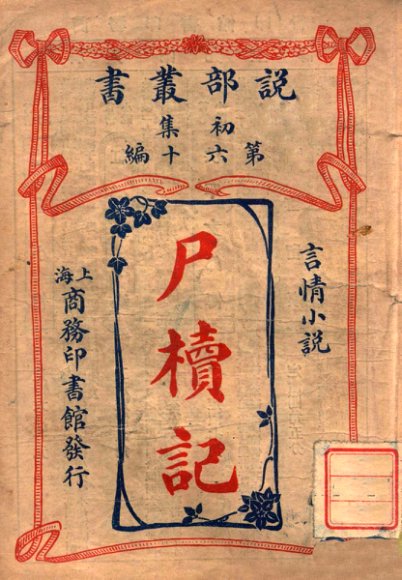 説部叢書
初集
第六十編
言情小説
尸櫝記
上海商務印書館發行